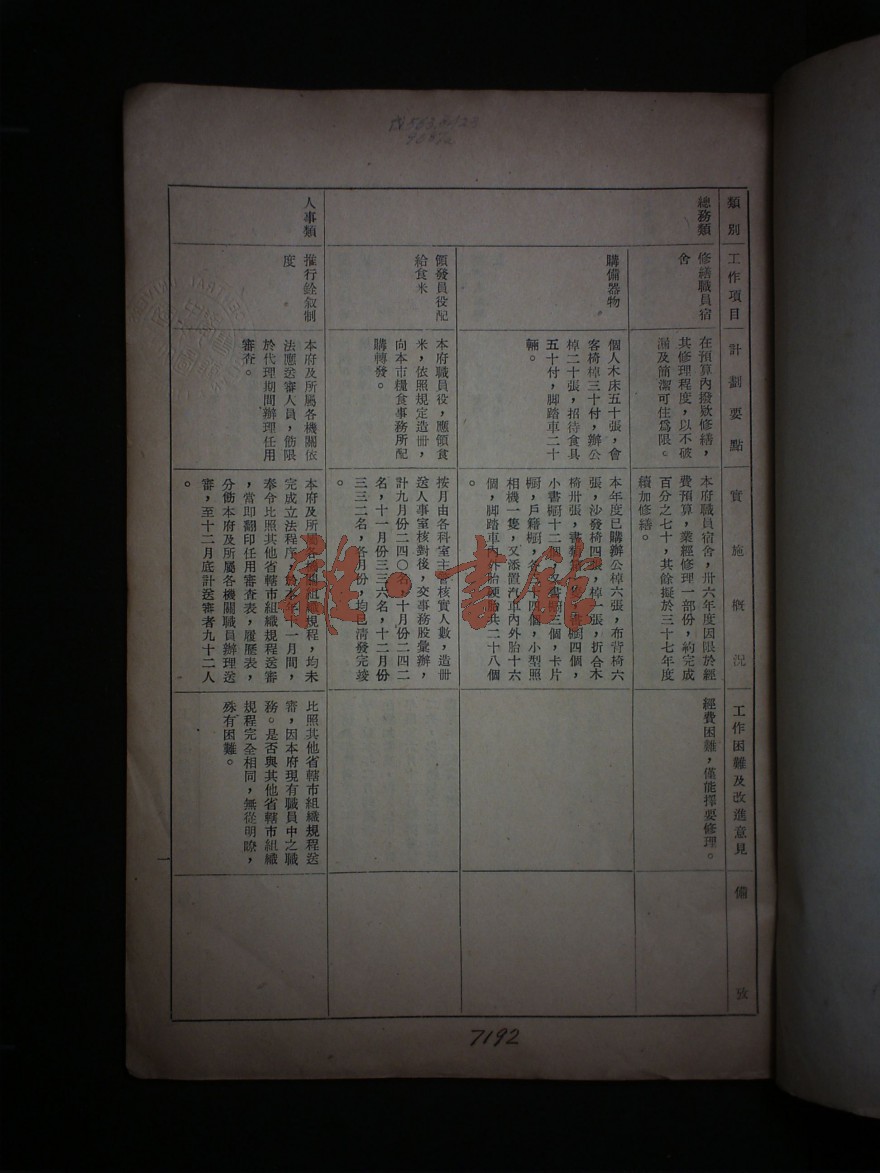 類別
工作項目
計劃要點
實施概況
工作困難及改進意見
備攷
總務類
修繕職員宿
舍
在預算內撥欵修繕，
其修理程度，以不破
漏及簡潔可住爲限。
本府職員宿舍，卅六年度因限於經
費預算，業經修理一部份，約完成
百分之七十，其餘擬於三十七年度
續加修繕。
經費困難，僅能擇要修理。
購備器物
個人木床五十張，會
客椅槕三十付，辦公
槕二十張，招待食具
五十付，脚踏車二十
輛。
本年度已購辦公槕六張，布背椅六
張，沙發椅四張，槕一張，折合木
椅卅張，書類
書櫥四個，
小書櫥十二個，
三個，卡片
櫥，戶籍櫥，各三十四個，小型照
相機一隻，又添置汽車內外胎十六
個，脚踏車內外胎
共二十八個
領發員役配
給食米
本府職員役，應領食
米，依照規定造册，
向本市糧食事務所配
購轉發。
按月由各科室主管核實人數，造册
送人事室核對後，交事務股彙辦，
計九月份二四〇名，十月份二四二
名，十一月份三三六名，十二月份
三三二名，各月份，均已清發完竣
。
人事類
推行銓叙制
度
本府及所屬各機關依
法應送審人員，飭限
於代理期間辦理任用
審查。
本府及所屬各機關組織規程，均未
完成立法程序，於本年十一月間，
奉令比照其他省轄市組織規程送審
，當即翻印任用審查表，履歷表，
分飭本府及所屬各機關職員辦理送
審，至十二月底計送審者九十二人
。
比照其他省轄市組織規程送
審，因本府現有職員中之職
務。是否與其他省轄市組織
規程完全相同，無從明瞭，
殊有困難。
一
7192